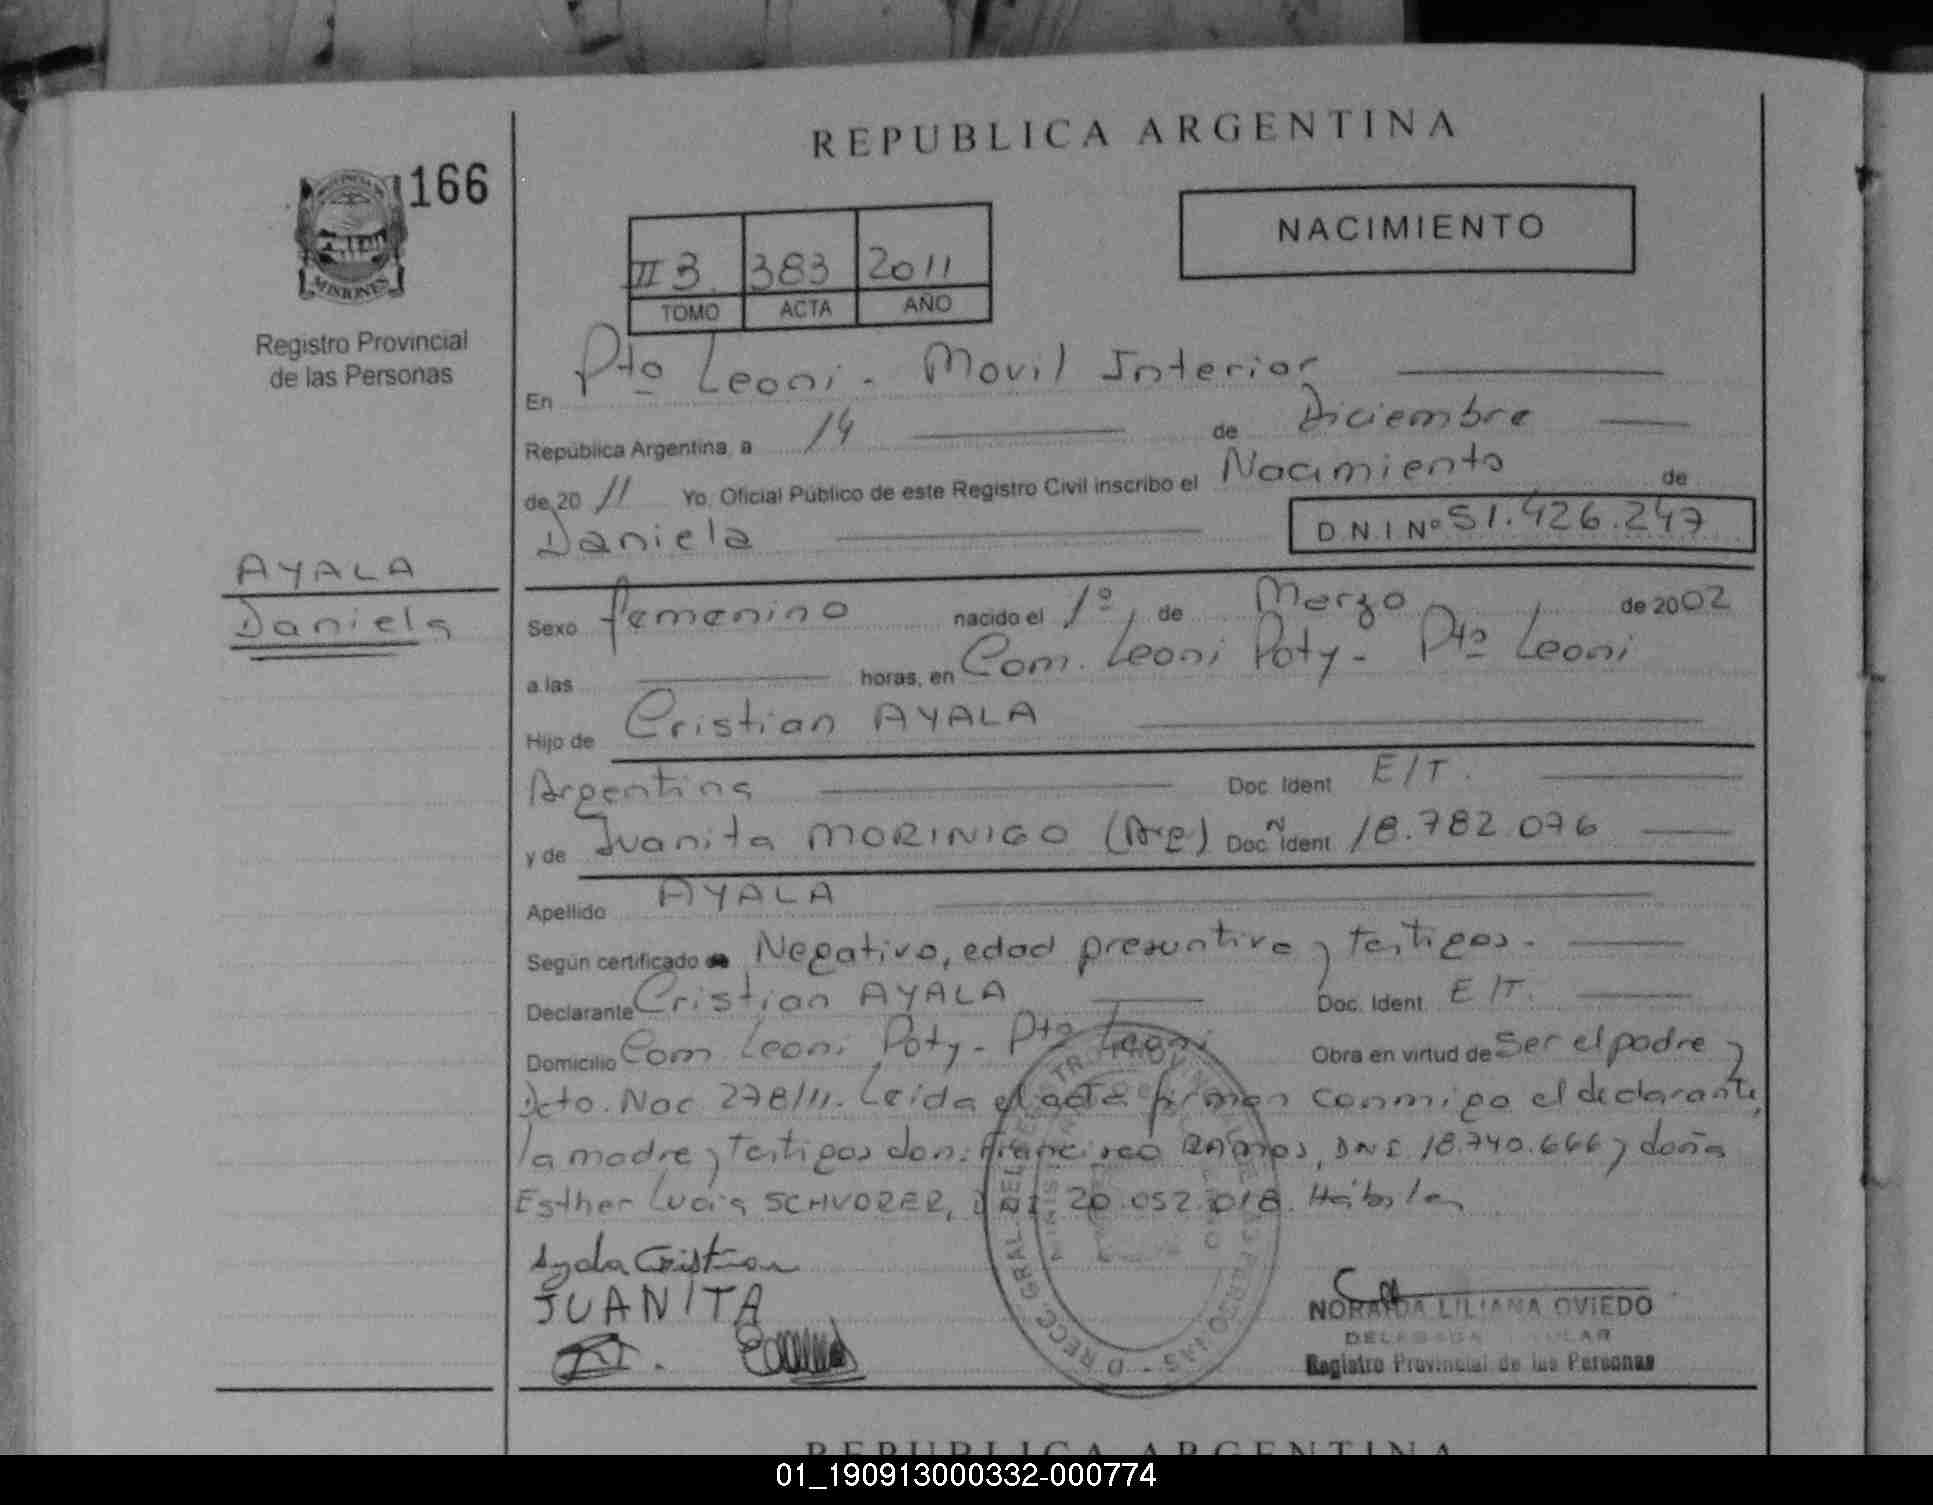 REPUBLICA ARGENTINA
166
MISIONES
Registro Provincial
de las Personas
NACIMIENTO
II 3 383 2011
TOMO ACTA AÑO
En Pto Leoni - Movil Interior
República Argentina, a 14 de Diciembre
de 20 11 Yo, Oficial Público de este Registro Civil inscribo el Nacimiento de
Daniela D.N.I Nº 51.426.247
AYALA
Daniela
Sexo femenino nacido el 1º de Marzo de 2002
a las horas, en Com. Leoni Poty - Pto Leoni
Hijo de Cristian AYALA
Argentina Doc. Ident E/T.
y de Juanita MORINIGO (Arg) Doc. Ident 18.782.076
Apellido AYALA
Según certificado de Negativo, edad presuntiva y testigos.
Declarante Cristian AYALA Doc. Ident E/T.
Domicilio Com Leoni Poty - Pto Leoni Obra en virtud de ser el padre y
Dcto. Nac 278/11. Leida el acta firman conmigo el declarante,
la madre y testigos don: Francisco RAMOS, DNI 18.740.666 y doña
Esther Lucia SCHVORER, DNI 20.052.018. Hábiles
Ayala Cristian
JUANITA
NORAIDA LILIANA OVIEDO
DELEGADA TITULAR
Registro Provincial de las Personas
REPUBLICA ARGENTINA
01_190913000332-000774